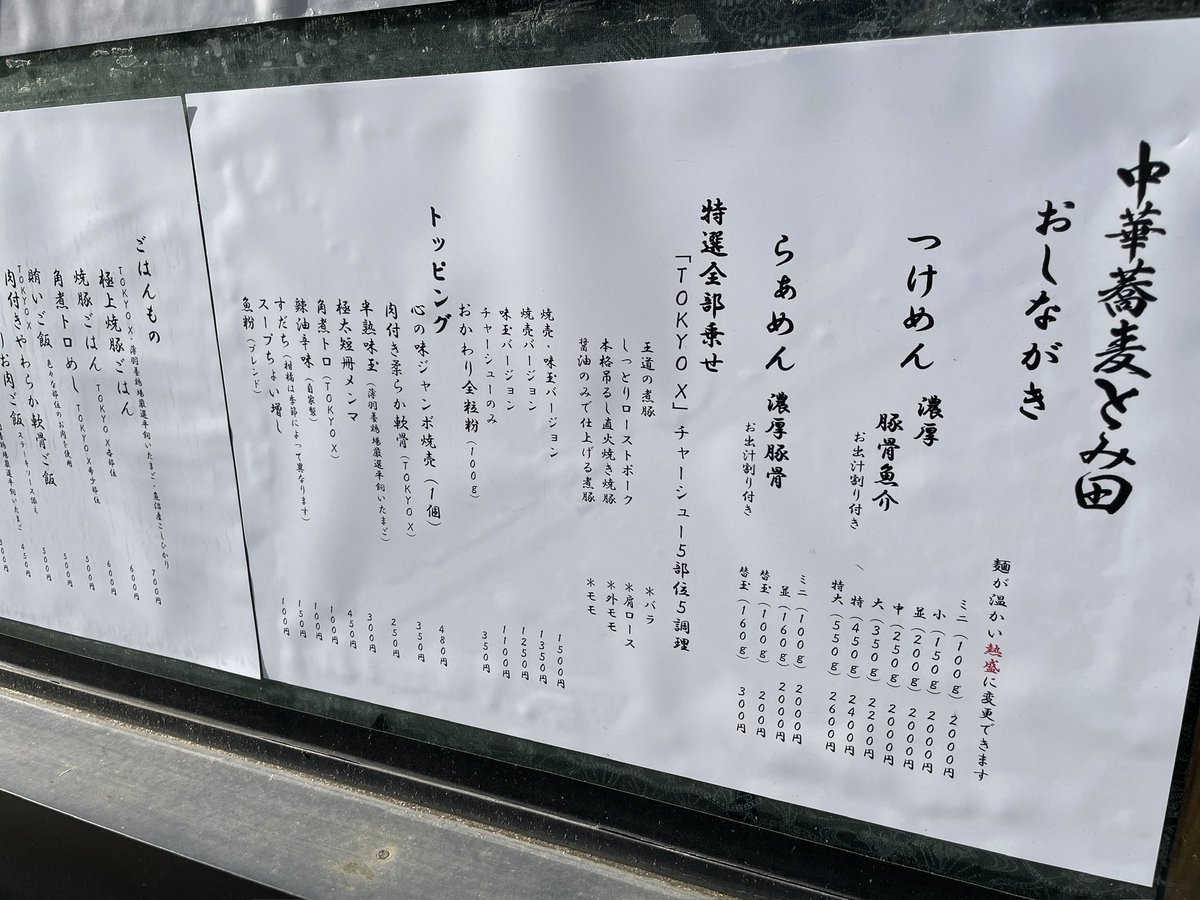 中華蕎麦とみ田
おしながき
麺が温かい熱盛に変更できます
つけめん 濃厚
豚骨魚介
お出汁割り付き
ミニ（100g） 2000円
小（150g） 2000円
並（200g） 2000円
中（250g） 2000円
大（350g） 2200円
特（450g） 2400円
特大（550g） 2600円
らぁめん 濃厚豚骨
お出汁割り付き
ミニ（100g） 2000円
並（160g） 2000円
替玉（100g） 200円
替玉（160g） 300円
特選全部乗せ
「TOKYO X」チャーシュー5部位5調理
王道の煮豚 *バラ
しっとりローストポーク *肩ロース
本格吊るし直火焼き焼豚 *外モモ
醤油のみで仕上げる煮豚 *モモ
焼売・味玉バージョン 1500円
焼売バージョン 1350円
味玉バージョン 1250円
チャーシューのみ 1100円
おかわり全粒粉（100g） 350円
トッピング
心の味ジャンボ焼売（1個） 480円
肉付き柔らか軟骨（TOKYO X） 350円
半熟味玉（薄羽養鶏場厳選平飼いたまご） 250円
極太短冊メンマ 300円
角煮トロ（TOKYO X） 450円
辣油辛味（自家製） 100円
すだち（柑橘は季節によって異なります） 100円
スープちょい増し 150円
魚粉（ブレンド） 100円
ごはんもの
TOKYO X・薄羽養鶏場厳選平飼いたまご・魚沼産こしひかり
極上焼豚ごはん TOKYO X各部位
焼豚ごはん TOKYO X希少部位
角煮トロめし
賄いご飯 色々な部位のお肉を使用
TOKYO X
肉付きやわらか軟骨ご飯
お肉ご飯 ステーキソース添え
700円
600円
600円
500円
500円
500円
450円
300円